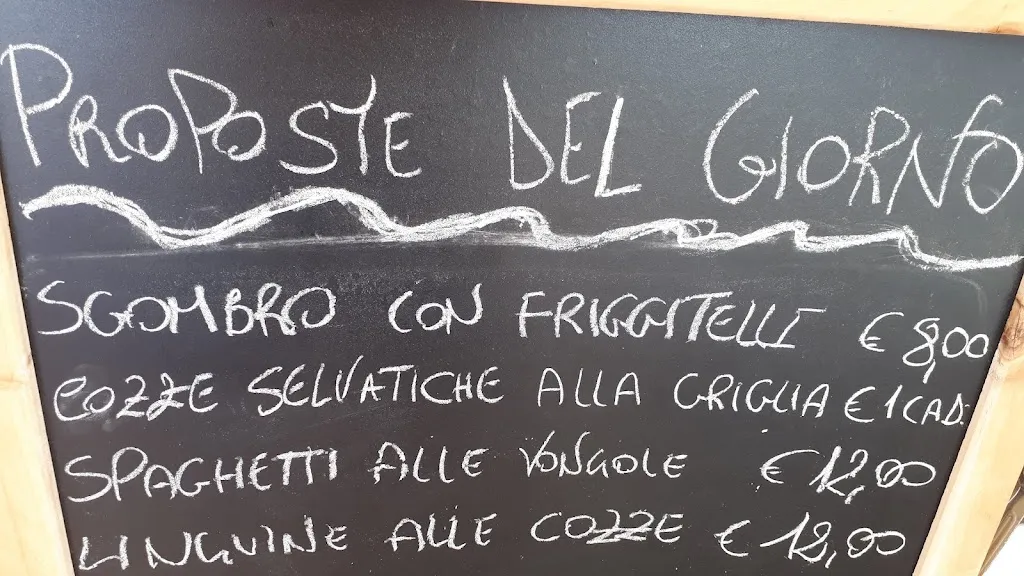 PROPOSTE DEL GIORNO
SGOMBRO CON FRIGGITELLI € 8,00
COZZE SELVATICHE ALLA GRIGLIA € 1 CAD.
SPAGHETTI ALLE VONGOLE € 12,00
LINGUINE ALLE COZZE € 12,00